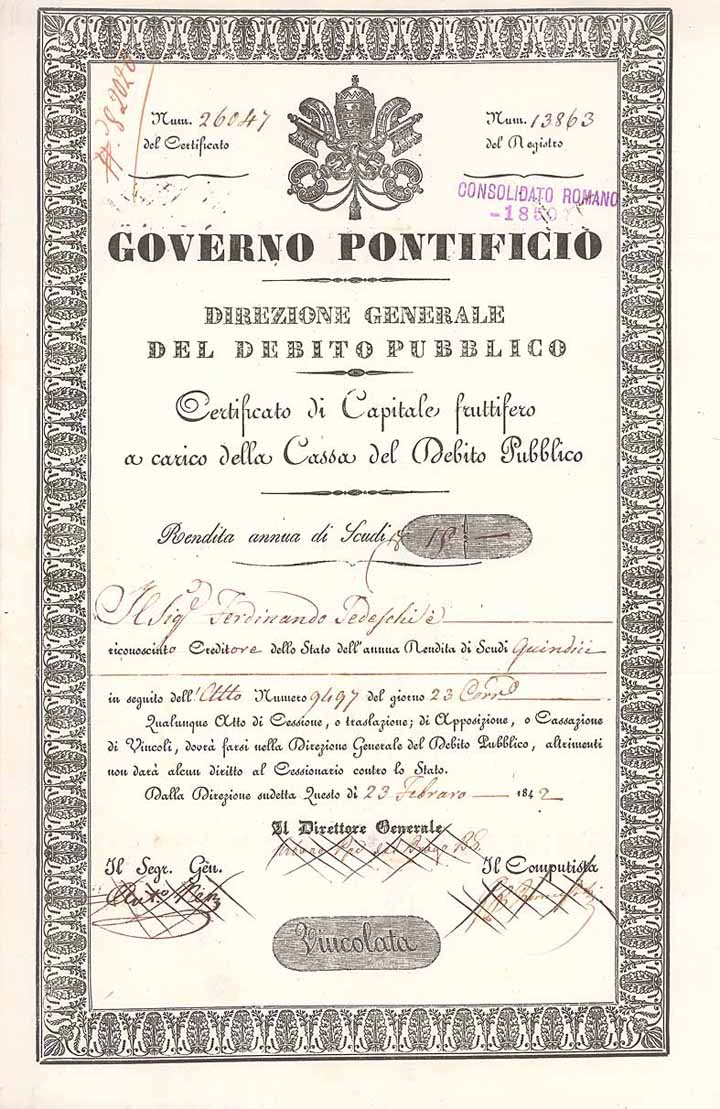 Num. 26047
del Certificato
Num. 13863
del Registro
CONSOLIDATO ROMANO
-1850
GOVERNO PONTIFICIO
DIREZIONE GENERALE
DEL DEBITO PUBBLICO
Certificato di Capitale fruttifero
a carico della Cassa del Debito Pubblico
Rendita annua di Scudi 15
Il Sigr Ferdinando Tedeschi è
riconosciuto Creditore dello Stato dell'annua Rendita di Scudi Quindici
in seguito dell'Atto Numero 9497 del giorno 23 Corre
Qualunque Atto di Cessione, o traslazione; di Apposizione, o Cassazione
di Vincoli, dovrà farsi nella Direzione Generale del Debito Pubblico, altrimenti
non darà alcun diritto al Cessionario contro lo Stato.
Dalla Direzione sudetta Questo dì 23 Febraro 1842
Il Direttore Generale
Il Segr. Gen.
Il Computista
Vincolata